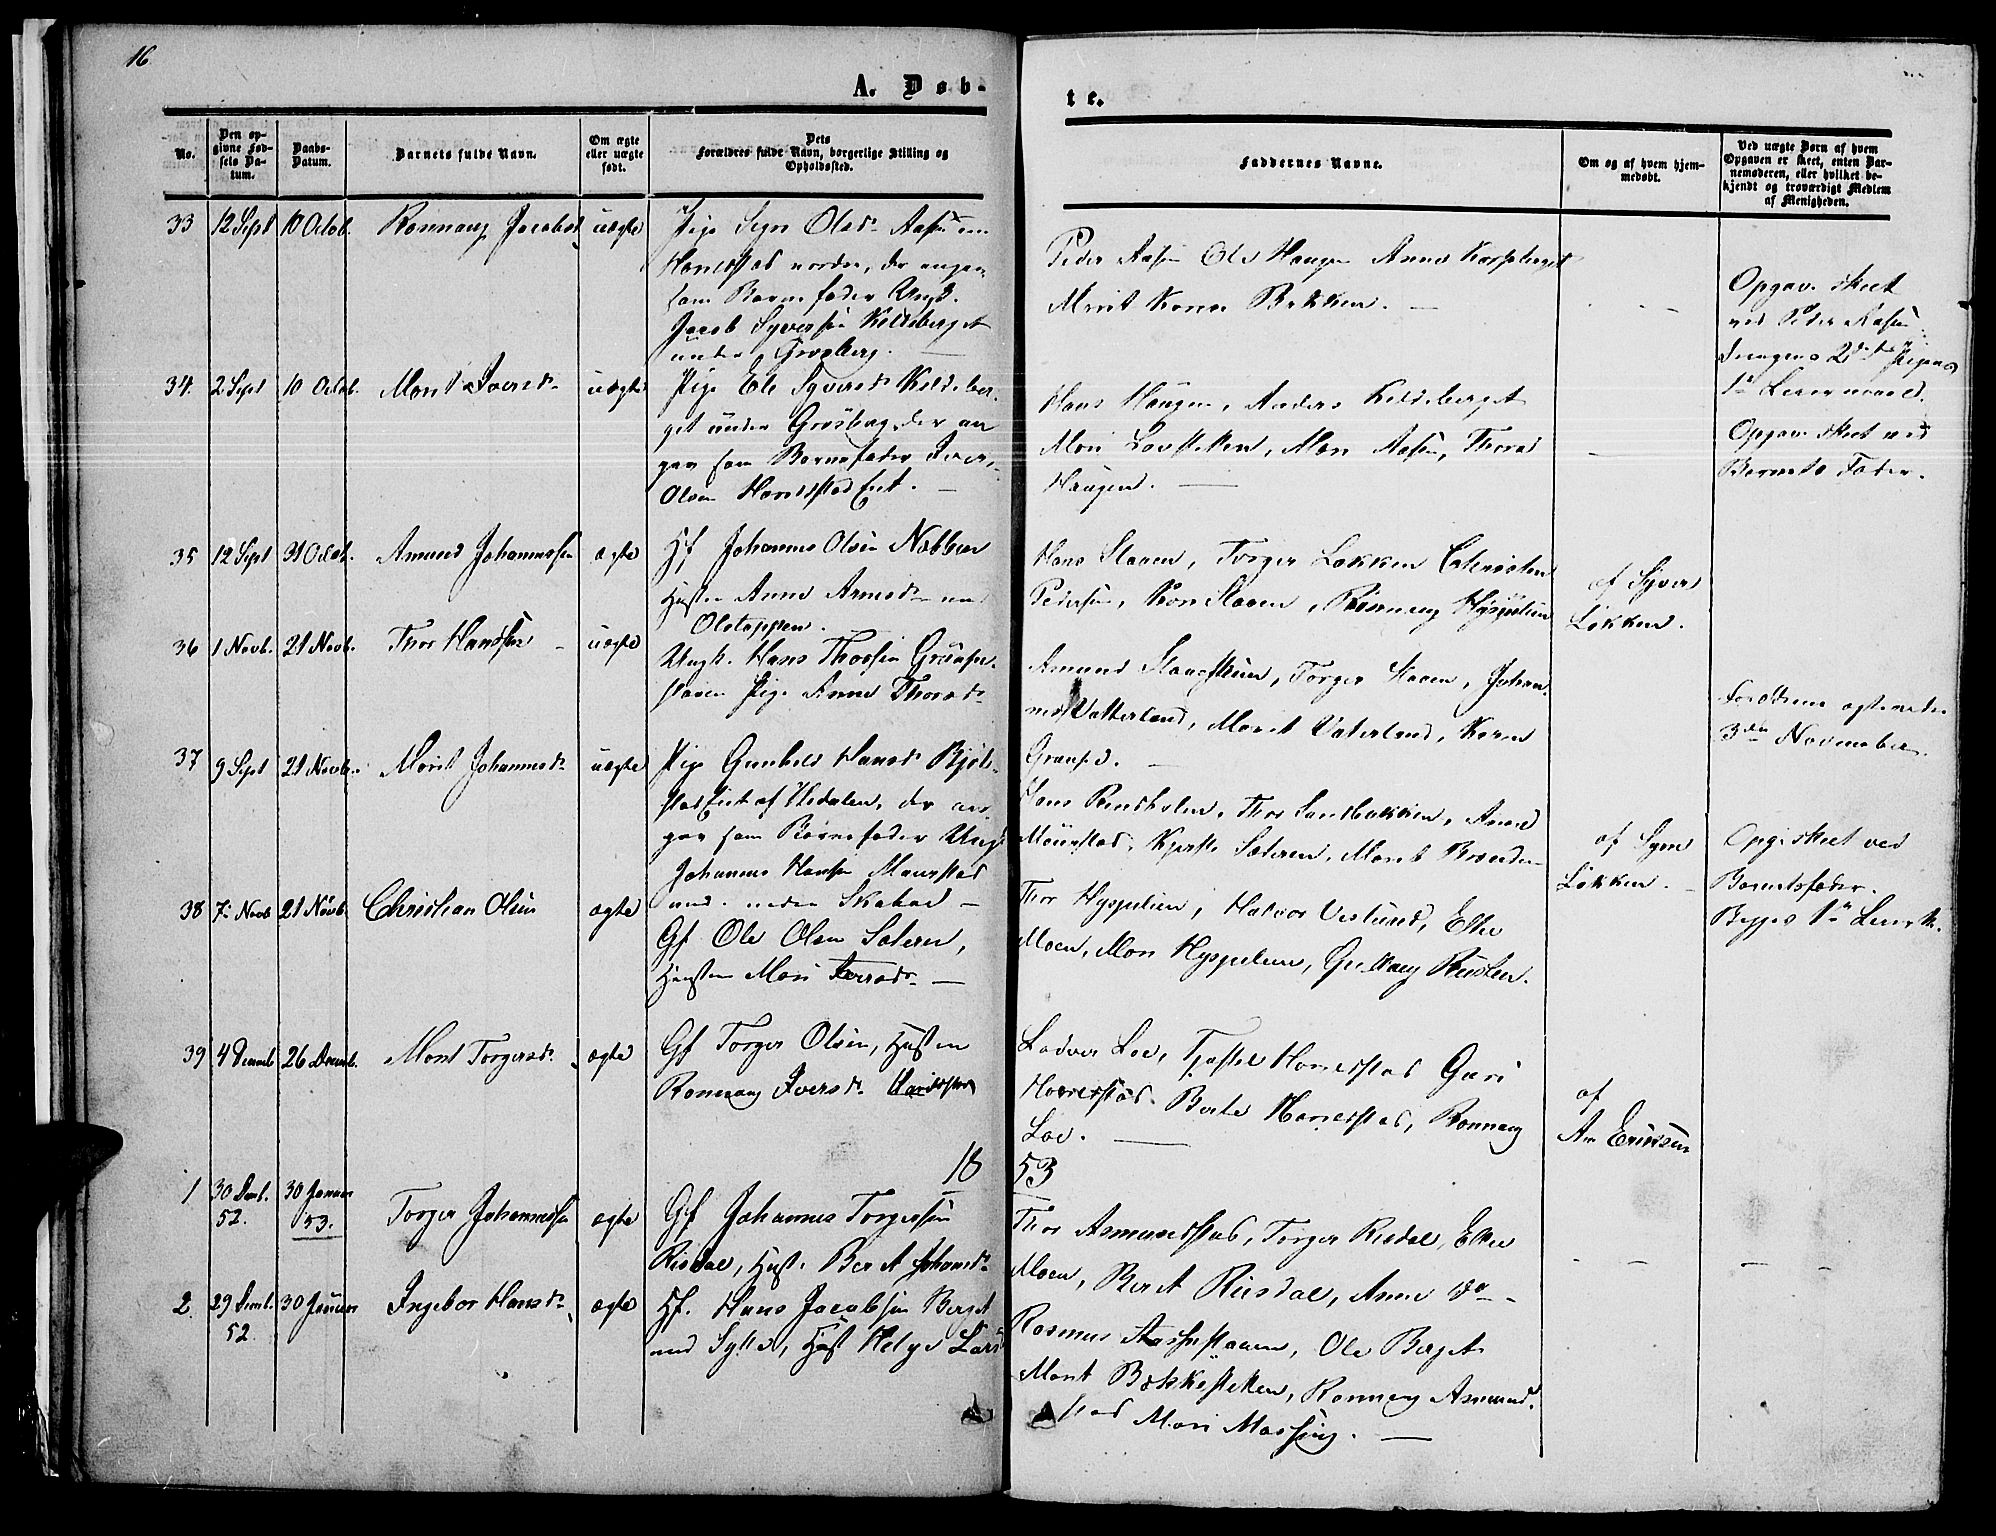 16
A. Døb-
te.
No.
Den op-
givne Fød-
sels Da-
tum.
Daabs-
Datum.
Barnets fulde Navn.
Om ægte
eller uægte
født.
Dets
Forældres fulde Navn, borgerlige Stilling og
Opholdssted.
Faddernes Navne.
Om og af hvem hjem-
medøbt.
Ved uægte Børn af hvem
Opgaven er skeet, enten Bar-
nemoderen, eller hvilket be-
kjendt og troværdigt Medlem
af Menigheden.
33 12 Sept 10 Octob. Rønnaug Jacobsd uægte
Pige Sign Olsd. Aasen
Harildstad nordre, der angav
som Barnefader Ungk.
Jacob Syversen Kildeberget
under Grosberg.
Peder Aasen Ole Haugen Anne
Marit Bakken.
Opgav. skeet
ved Peder Aasen
Drengens 2det Pigens
1te Leiermaal.
34. 2 Sept 10 Octob. Marit Iversd. uægte
Pige Eli Syversd. Kildeber-
get under Grosberg, der an
gav som Barnefader Iver
Olsen Harildstad Eiet.
Hans Haugen, Anders Kildeberget
Mari Lovstekken, Mari Aasen, Thora
Haugen.
Opgav. skeet ved
Barnets Fader.
35 12 Sept 31 Octob. Amund Johannessen ægte
Hf. Johannes Olsen Nebben
Hustru Anne Arnesd.
Olstappen.
Hans Slaaen, Torger Løkken Christen
Pedersen, Kari Slaaen, Rønnaug Hysjulien
af Syver
Løkken.
36 1 Novb. 21 Novb. Thor Hansen uægte
Ungk. Hans Thorsen Graupe-
staaen Pige Anne Thorsd.
Amund Slaaen, Torger Slaaen, Johan-
nes Vatterland, Marit Vaterland, Karen
Graupe.
Forældrene ægteviede
3die November
37 9 Sept 21 Novb. Marit Johannesd. uægte
Pige Gunhild Hansd. Bjøl-
stad Eiet af Hedalen, der an-
gav som Barnefader Ungk
Johannes Hansen Maurstad
Skabue
Hans Rindhølen, Thor Sandbakken, Anne
Maurstad, Kjersti Sæteren, Marit
af Syver
Løkken.
Opg. skeet ved
Barnetsfader.
Begges 1te Leierm.
38 7de Novb 21 Novb. Christian Olsen ægte
Gf. Ole Olsen Sæteren,
Hustru Mari Iversd.
Thor Hysjulien, Halvor Veslund, Elke
Moen, Mari Hysjulien, Rusten.
39 4 Decemb 26 Decemb. Marit Torgersd. ægte
Gf. Torger Olsen, Hustru
Rønnaug Iversd. Harildstad
Lodver Loe, Kjøstel Harildstad Guri
Harildstad. Berte Harildstad, Rønnaug
Loe.
af
Am Erichsen
18
53
1 30 Decb.
52. 30 Januar
53. Torger Johannessen ægte
Gf. Johannes Torgersen
Risdal, Hust. Berit Johansd.
Thor Asmundstad, Torger Risdal, Elke
Moen, Berit Risdal, Anne do
2 29 Decb.
52. 30 Januar Ingebor Hansd. ægte
Hf. Hans Jacobsen Berget
und Sylte, Hust Helge Lars
Rasmus, Ole Berget
Marit Bækkestekken, Rønnaug Asmund-
stad Mari Massing.